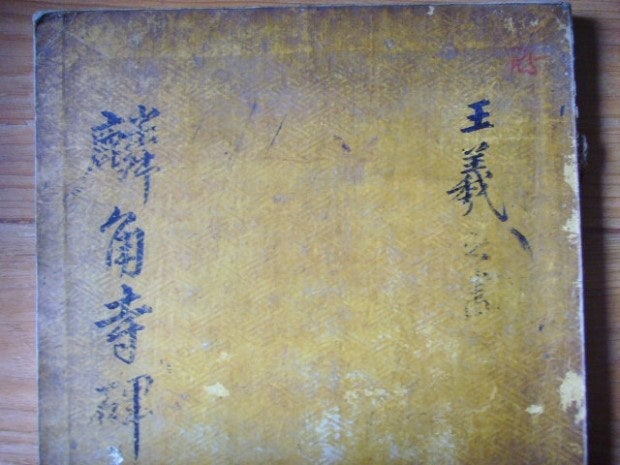 王羲之書
麟角寺碑